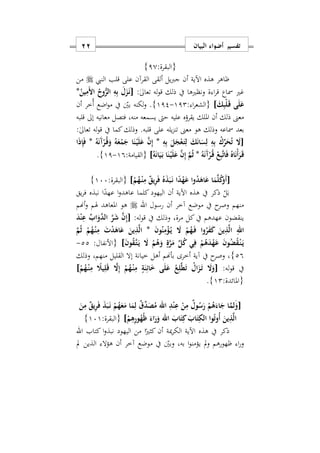 تفسير أضواء البيان
٢٢
{البقرة:٩٧}
ظاهر هذه الآية أن جبريل ألقى القرآن على قلب النبي ﷺ من
غير سماع قراءة ونظيرها في ذلك قوله تعالى: [نَزَلَ بِهِ الرُّوحُ الأَمِينُ *
عَلَى قَلْبِكَ] {الشعراء:١٩٣-١٩٤}. ولكنه بيّن في مواضع أُخر أن
معنى ذلك أن الملك يقرؤه عليه حتى يسمعه منه، فتصل معانيه إلى قلبه
بعد سماعه وذلك هو معنى تنزيله على قلبه. وذلك كما في قوله تعالى:
[لاَ تُحَرِّكْ بِهِ لِسَانَكَ لِتَعْجَلَ بِهِ * إِنَّ عَلَيْنَا جَمْعَهُ وَقُرْآَنَهُ * فَإِذَا
قَرَأْنَاهُ فَاتَّبِعْ قُرْآَنَهُ * ثُمَّ إِنَّ عَلَيْنَا بَيَانَهُ] {القيامة:١٦-١٩}.
[أَوَكُلَّمَا عَاهَدُوا عَهْدًا نَبَذَهُ فَرِيقٌ مِنْهُمْ] {البقرة:١٠٠}
ذكر في هذه الآية أن اليهود كلما عاهدوا عهدًا نبذه فريق
منهم وصرح في موضع آخر أن رسول الله ﷺ هو المعاهد لهم وأنهم
ينقضون عهدهم في كل مرة، وذلك في قوله: [إِنَّ شَرَّ الدَّوَابِّ عِنْدَ
اللهِ الَّذِينَ كَفَرُوا فَهُمْ لَا يُؤْمِنُونَ * الَّذِينَ عَاهَدْتَ مِنْهُمْ ثُمَّ
يَنْقُضُونَ عَهْدَهُمْ فِي كُلِّ مَرَّةٍ وَهُمْ لَا يَتَّقُونَ] {الأنفال: ٥٥-
٥٦}، وصرح في آية أخرى بأنهم أهل خيانة إلا القليل منهم، وذلك
في قوله: [وَلَا تَزَالُ تَطَّلِعُ عَلَى خَائِنَةٍ مِنْهُمْ إِلَّا قَلِيلًا مِنْهُمْ]
{المائدة:١٣}.
[وَلَمَّا جَاءَهُمْ رَسُولٌ مِنْ عِنْدِ اللهِ مُصَدِّقٌ لِمَا مَعَهُمْ نَبَذَ فَرِيقٌ مِنَ
الَّذِينَ أُوتُوا الكِتَابَ كِتَابَ اللهِ وَرَاءَ ظُهُورِهِمْ] {البقرة:١٠١}
ذكر في هذه الآية الكريمة أن كثيرًا من اليهود نبذوا كتاب الله
وراء ظهورهم ولم يؤمنوا به، وبيّن في موضع آخر أن هؤلاء الذين لم